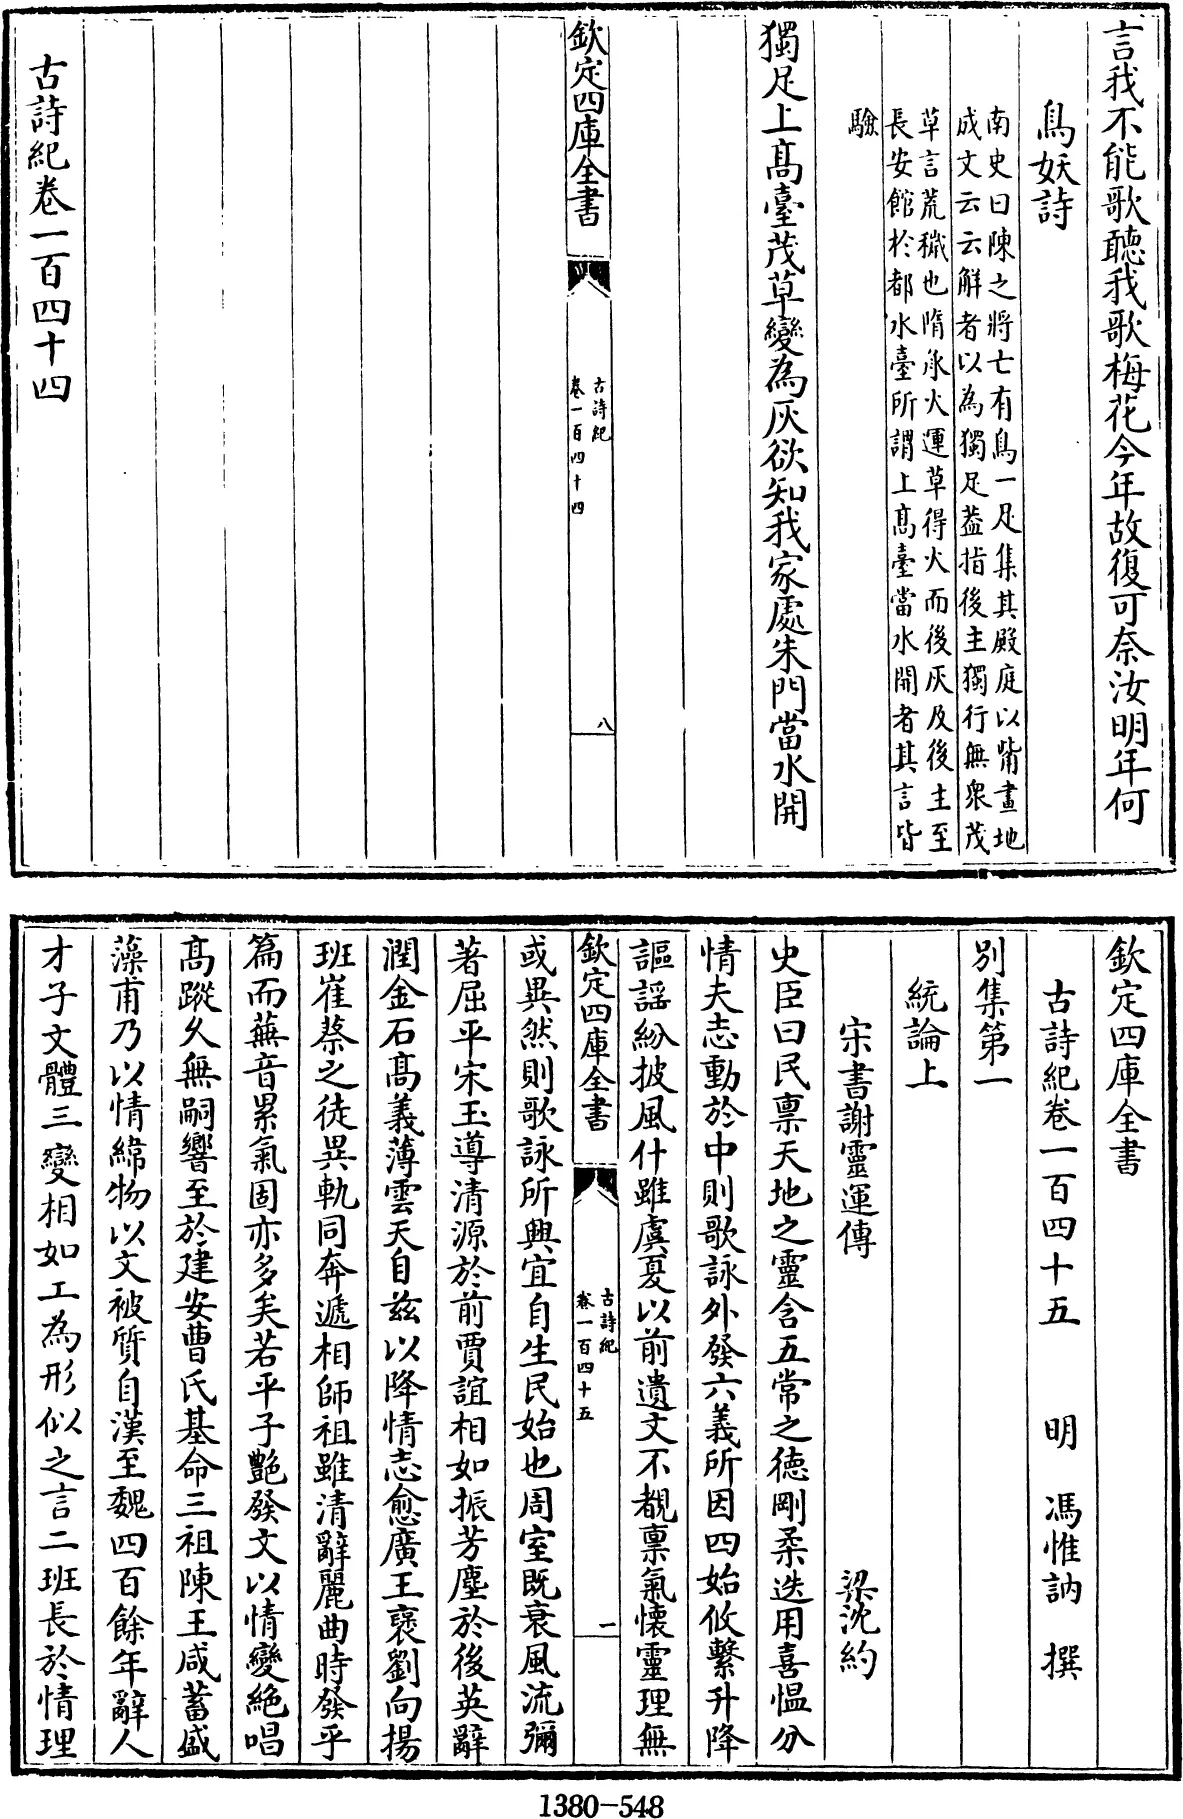 言我不能歌聽我歌梅花今年故復可奈汝明年何
鳥妖詩
南史曰陳之將亡有鳥一足集其殿庭以觜畫地
成文云云解者以為獨足葢指後主獨行無衆茂
草言荒穢也隋承火運草得火而後灰及後主至
長安館於都水臺所謂上髙臺當水開者其言皆
驗
獨足上髙臺茂草變為灰欲知我家處朱門當水開
欽定四庫全書
古詩紀
卷一百四十四
八
古詩紀卷一百四十四
欽定四庫全書
古詩紀卷一百四十五
明 馮惟訥 撰
別集第一
統論上
宋書謝靈運傳
梁沈約
史臣曰民禀天地之靈含五常之徳剛柔迭用喜愠分
情夫志動於中則歌詠外發六義所因四始攸繫升降
謳謡紛披風什雖虞夏以前遺文不覩禀氣懷靈理無
欽定四庫全書
古詩紀
卷一百四十五
一
或異然則歌詠所興宜自生民始也周室既衰風流彌
著屈平宋玉導清源於前賈誼相如振芳塵於後英辭
潤金石髙義薄雲天自兹以降情志愈廣王褒劉向揚
班崔蔡之徒異軌同奔遞相師祖雖清辭麗曲時發乎
篇而蕪音累氣固亦多矣若平子艷發文以情變絶唱
髙蹤久無嗣響至於建安曹氏基命三祖陳王咸蓄盛
藻甫乃以情緯物以文被質自漢至魏四百餘年辭人
才子文體三變相如工為形似之言二班長於情理
1380-548